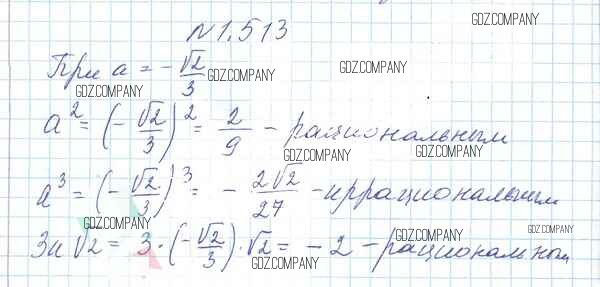 №1.513
GDZ.COMPANY
При a = -√2/3
GDZ.COMPANY
GDZ.COMPANY
GDZ.COMPANY
a² = (-√2/3)² = 2/9 - рациональным
GDZ.COMPANY
GDZ.COMPANY
a³ = (-√2/3)³ = -2√2/27 - иррациональным
GDZ.COMPANY
GDZ.COMPANY
GDZ.COMPANY
GDZ.COMPANY
3a√2 = 3·(-√2/3)·√2 = -2 - рациональным
GDZ.COMPANY